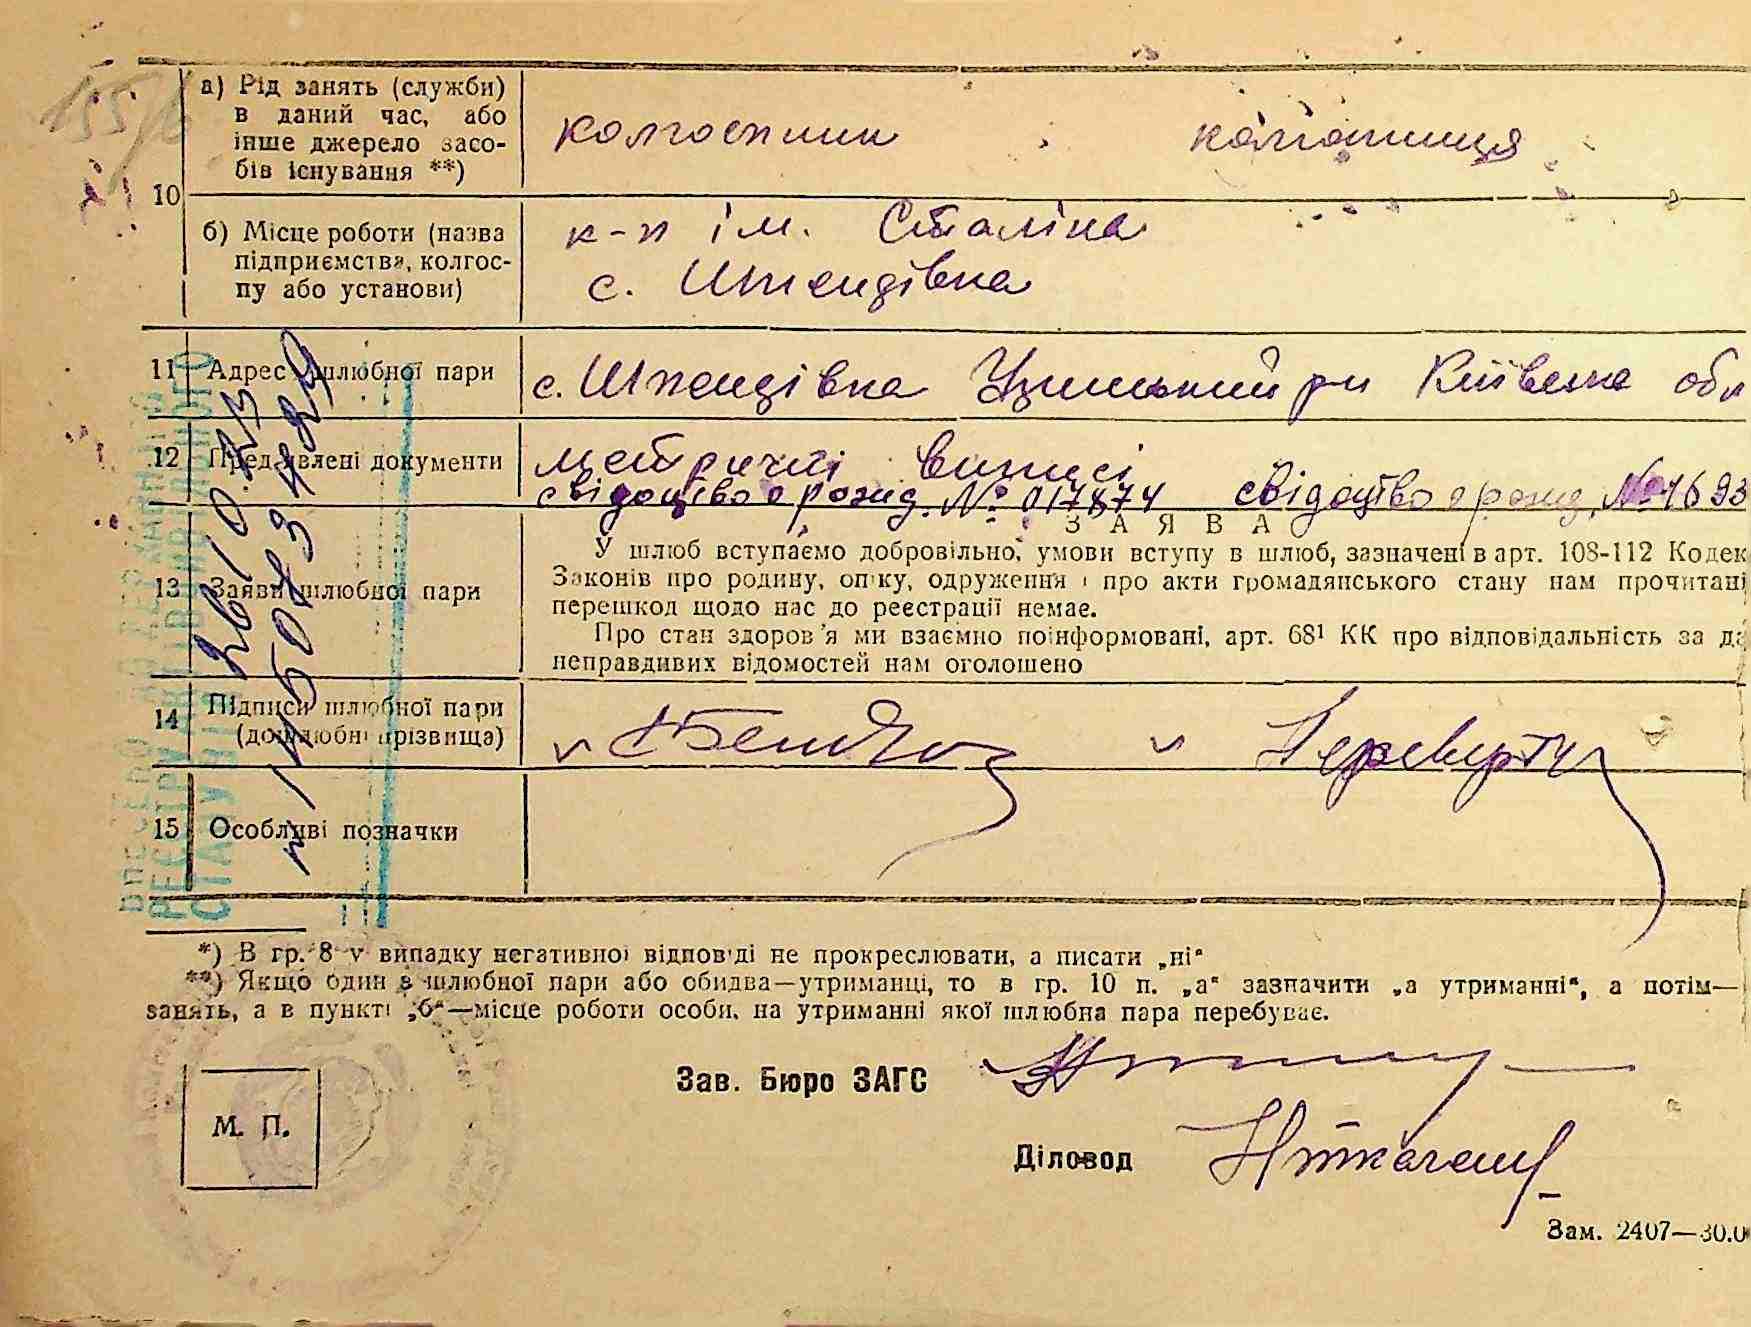 а) Рід занять (служби)
в даний час, або
інше джерело засо-
бів існування **)
колгоспник колгоспниця
10
б) Місце роботи (назва
підприємства, колгос-
пу або установи)
к-п ім. Сталіна
с. Шпендівка
11 Адрес шлюбної пари
с. Шпендівка Узинський р-н Київська обл
12 Пред'явлені документи
метричні виписі
свідоцтво о рожд. № 017874 свідоцтво о рожд. № 1693
ЗАЯВА
13 Заяви шлюбної пари
У шлюб вступаємо добровільно, умови вступу в шлюб, зазначені в арт. 108-112 Кодек
Законів про родину, опіку, одруження і про акти громадянського стану нам прочитані
перешкод щодо нас до реєстрації немає.
Про стан здоров'я ми взаємно поінформовані, арт. 68¹ КК про відповідальність за да
неправдивих відомостей нам оголошено
14 Підписи шлюбної пари
(дошлюбні прізвища)
15 Особливі позначки
*) В гр. 8 у випадку негативної відповіді не прокреслювати, а писати „ні“
**) Якщо один з шлюбної пари або обидва—утриманці, то в гр. 10 п. „а“ зазначити „а утриманні“, а потім—
занять, а в пункті „б“—місце роботи особи, на утриманні якої шлюбна пара перебуває.
Зав. Бюро ЗАГС
М. П.
Діловод
Зам. 2407—30.0